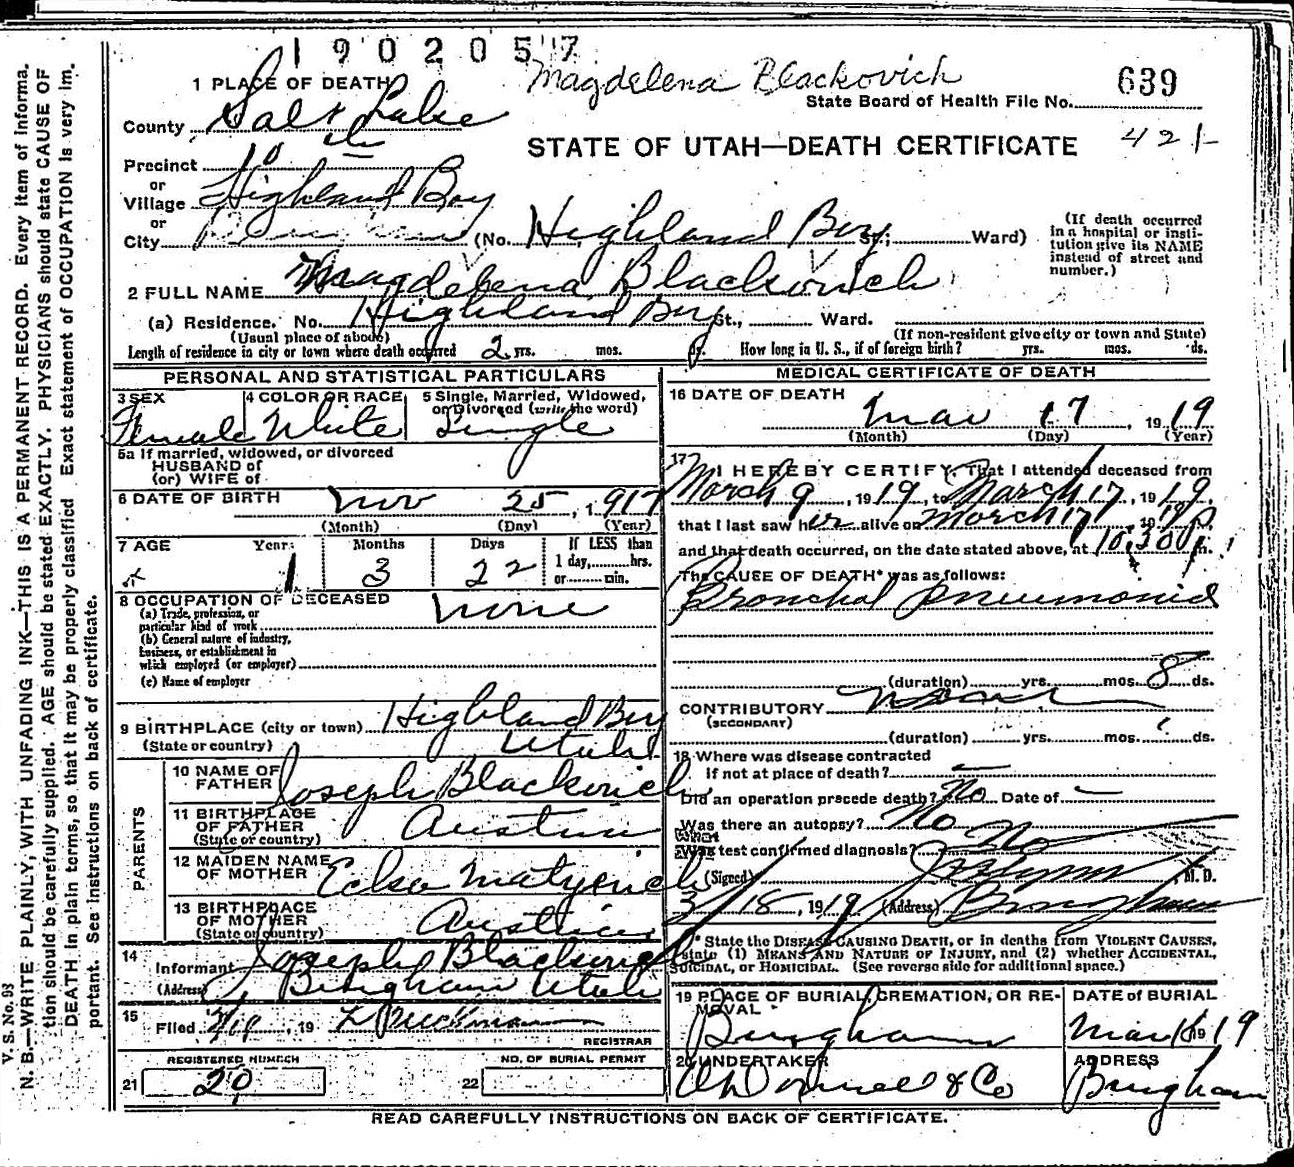 1902057
Magdelena Blackovich
639
1 PLACE OF DEATH
State Board of Health File No.
County Salt Lake
STATE OF UTAH—DEATH CERTIFICATE
421
Precinct 10
or
Village Highland Boy
or
City Bingham (No. Highland Boy St.; Ward)
(If death occurred in a hospital or insti-
tution give its NAME
instead of street and
number.)
2 FULL NAME Magdelena Blackovich
(a) Residence. No. Highland Boy St., Ward.
(Usual place of abode) (If non-resident give city or town and State)
Length of residence in city or town where death occurred 2 yrs. mos. ds. How long in U. S., if of foreign birth? yrs. mos. ds.
PERSONAL AND STATISTICAL PARTICULARS
3 SEX 4 COLOR OR RACE 5 Single, Married, Widowed,
or Divorced (write the word)
Female White Single
5a If married, widowed, or divorced
HUSBAND of
(or) WIFE of
6 DATE OF BIRTH Nov 25, 1917
(Month) (Day) (Year)
7 AGE Years Months Days If LESS than
1 day, hrs.
or min.
1 3 22
8 OCCUPATION OF DECEASED none
(a) Trade, profession, or
particular kind of work
(b) General nature of industry,
business, or establishment in
which employed (or employer)
(c) Name of employer
9 BIRTHPLACE (city or town) Highland Boy
(State or country) Utah
PARENTS
10 NAME OF
FATHER Joseph Blackovich
11 BIRTHPLACE
OF FATHER Austria
(State or country)
12 MAIDEN NAME
OF MOTHER Matyevich
13 BIRTHPLACE
OF MOTHER Austria
(State or country)
14
Informant Joseph Blackovich
(Address) Bingham Utah
15
Filed , 19
REGISTRAR
REGISTERED NUMBER NO. OF BURIAL PERMIT
21 29 22
MEDICAL CERTIFICATE OF DEATH
16 DATE OF DEATH
Mar 17, 1919
(Month) (Day) (Year)
17
I HEREBY CERTIFY, That I attended deceased from
March 9, 1919, to March 17, 1919,
that I last saw her alive on March 17, 1919,
and that death occurred, on the date stated above, at 10.30 p m.
The CAUSE OF DEATH* was as follows:
Bronchal Pneumonia
(duration) yrs. mos. 8 ds.
CONTRIBUTORY
(SECONDARY)
(duration) yrs. mos. ds.
18 Where was disease contracted
If not at place of death? —
Did an operation precede death? No Date of —
Was there an autopsy? No
What test confirmed diagnosis? No
(Signed) , M. D.
3/18, 1919 (Address) Bingham
* State the DISEASE CAUSING DEATH, or in deaths from VIOLENT CAUSES,
state (1) MEANS AND NATURE OF INJURY, and (2) whether ACCIDENTAL,
SUICIDAL, or HOMICIDAL. (See reverse side for additional space.)
19 PLACE OF BURIAL, CREMATION, OR RE-
MOVAL DATE of BURIAL
Bingham Mar 18 1919
20 UNDERTAKER ADDRESS
O'Donnell & Co Bingham
READ CAREFULLY INSTRUCTIONS ON BACK OF CERTIFICATE.
V. S. No. 93
N. B.—WRITE PLAINLY, WITH UNFADING INK—THIS IS A PERMANENT RECORD. Every item of informa-
tion should be carefully supplied. AGE should be stated EXACTLY. PHYSICIANS should state CAUSE OF
DEATH in plain terms, so that it may be properly classified. Exact statement of OCCUPATION is very im-
portant. See instructions on back of certificate.